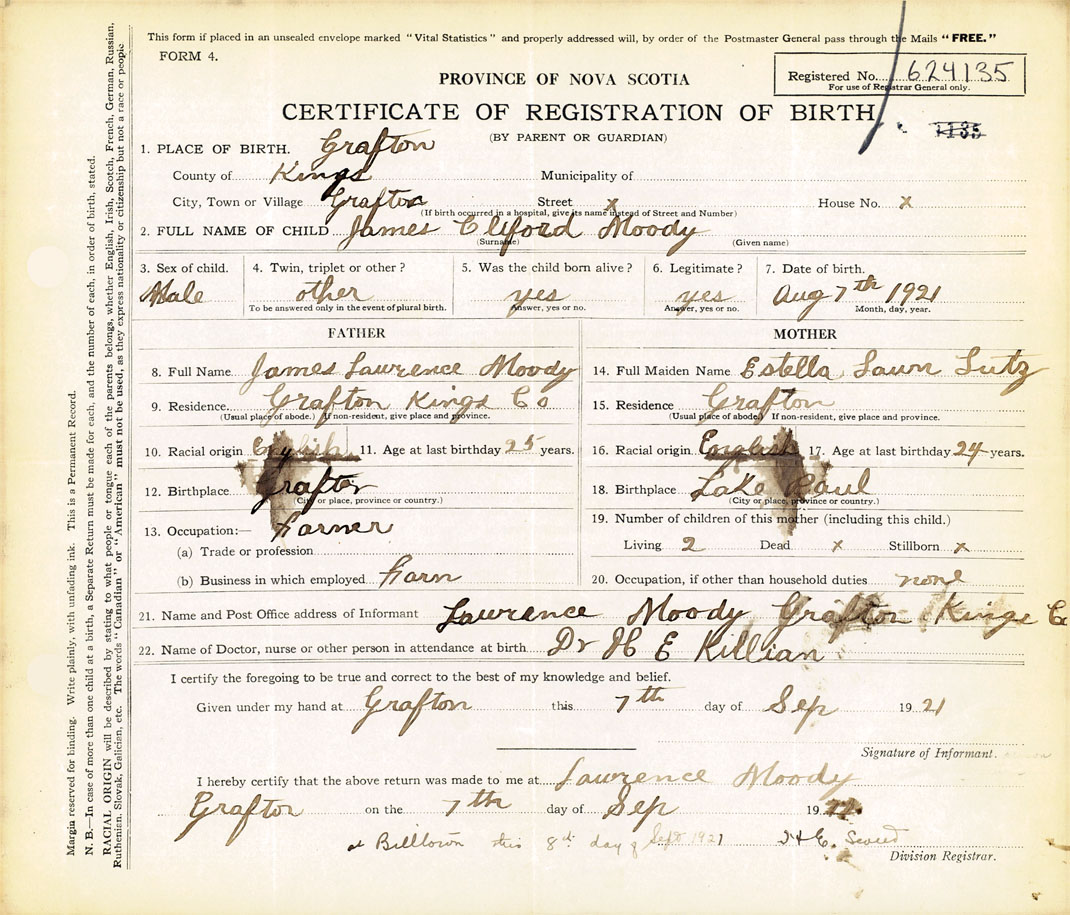 This form if placed in an unsealed envelope marked "Vital Statistics" and properly addressed will, by order of the Postmaster General pass through the Mails "FREE."
FORM 4.
Registered No. 624135
For use of Registrar General only.
PROVINCE OF NOVA SCOTIA
CERTIFICATE OF REGISTRATION OF BIRTH
(BY PARENT OR GUARDIAN)
1135
1. PLACE OF BIRTH. Grafton
County of Kings Municipality of
City, Town or Village Grafton Street x House No. x
(If birth occurred in a hospital, give its name instead of Street and Number)
2. FULL NAME OF CHILD James Cliford Moody
(Surname) (Given name)
3. Sex of child. 4. Twin, triplet or other? 5. Was the child born alive? 6. Legitimate? 7. Date of birth.
Male other yes yes Aug 7th 1921
To be answered only in the event of plural birth. Answer, yes or no. Answer, yes or no. Month, day, year.
FATHER
8. Full Name. James Lawrence Moody
9. Residence. Grafton Kings Co
(Usual place of abode.) If non-resident, give place and province.
10. Racial origin English 11. Age at last birthday 25 years.
12. Birthplace Grafton
(City or place, province or country.)
13. Occupation:— farmer
(a) Trade or profession
(b) Business in which employed farm
MOTHER
14. Full Maiden Name Estella Lawn Lutz
15. Residence Grafton
(Usual place of abode.) If non-resident, give place and province.
16. Racial origin English 17. Age at last birthday 24 years.
18. Birthplace Lake Paul
(City or place, province or country.)
19. Number of children of this mother (including this child.)
Living 2 Dead x Stillborn x
20. Occupation, if other than household duties none
21. Name and Post Office address of Informant Lawrence Moody Grafton Kings Co
22. Name of Doctor, nurse or other person in attendance at birth. Dr H E Killian
I certify the foregoing to be true and correct to the best of my knowledge and belief.
Given under my hand at Grafton this 7th day of Sep 1921
Signature of Informant.
I hereby certify that the above return was made to me at Lawrence Moody
Grafton on the 7th day of Sep 19
at Billtown this 8th day of Sept 1921
Division Registrar.
Margin reserved for binding. Write plainly, with unfading ink. This is a Permanent Record.
N. B.—In case of more than one child at a birth, a Separate Return must be made for each, and the number of each, in order of birth, stated.
RACIAL ORIGIN will be described by stating to what people or tongue each of the parents belongs, whether English, Irish, Scotch, French, German, Russian,
Ruthenian, Slovak, Galician, etc. The words "Canadian" or "American" must not be used, as they express nationality or citizenship but not a race or people